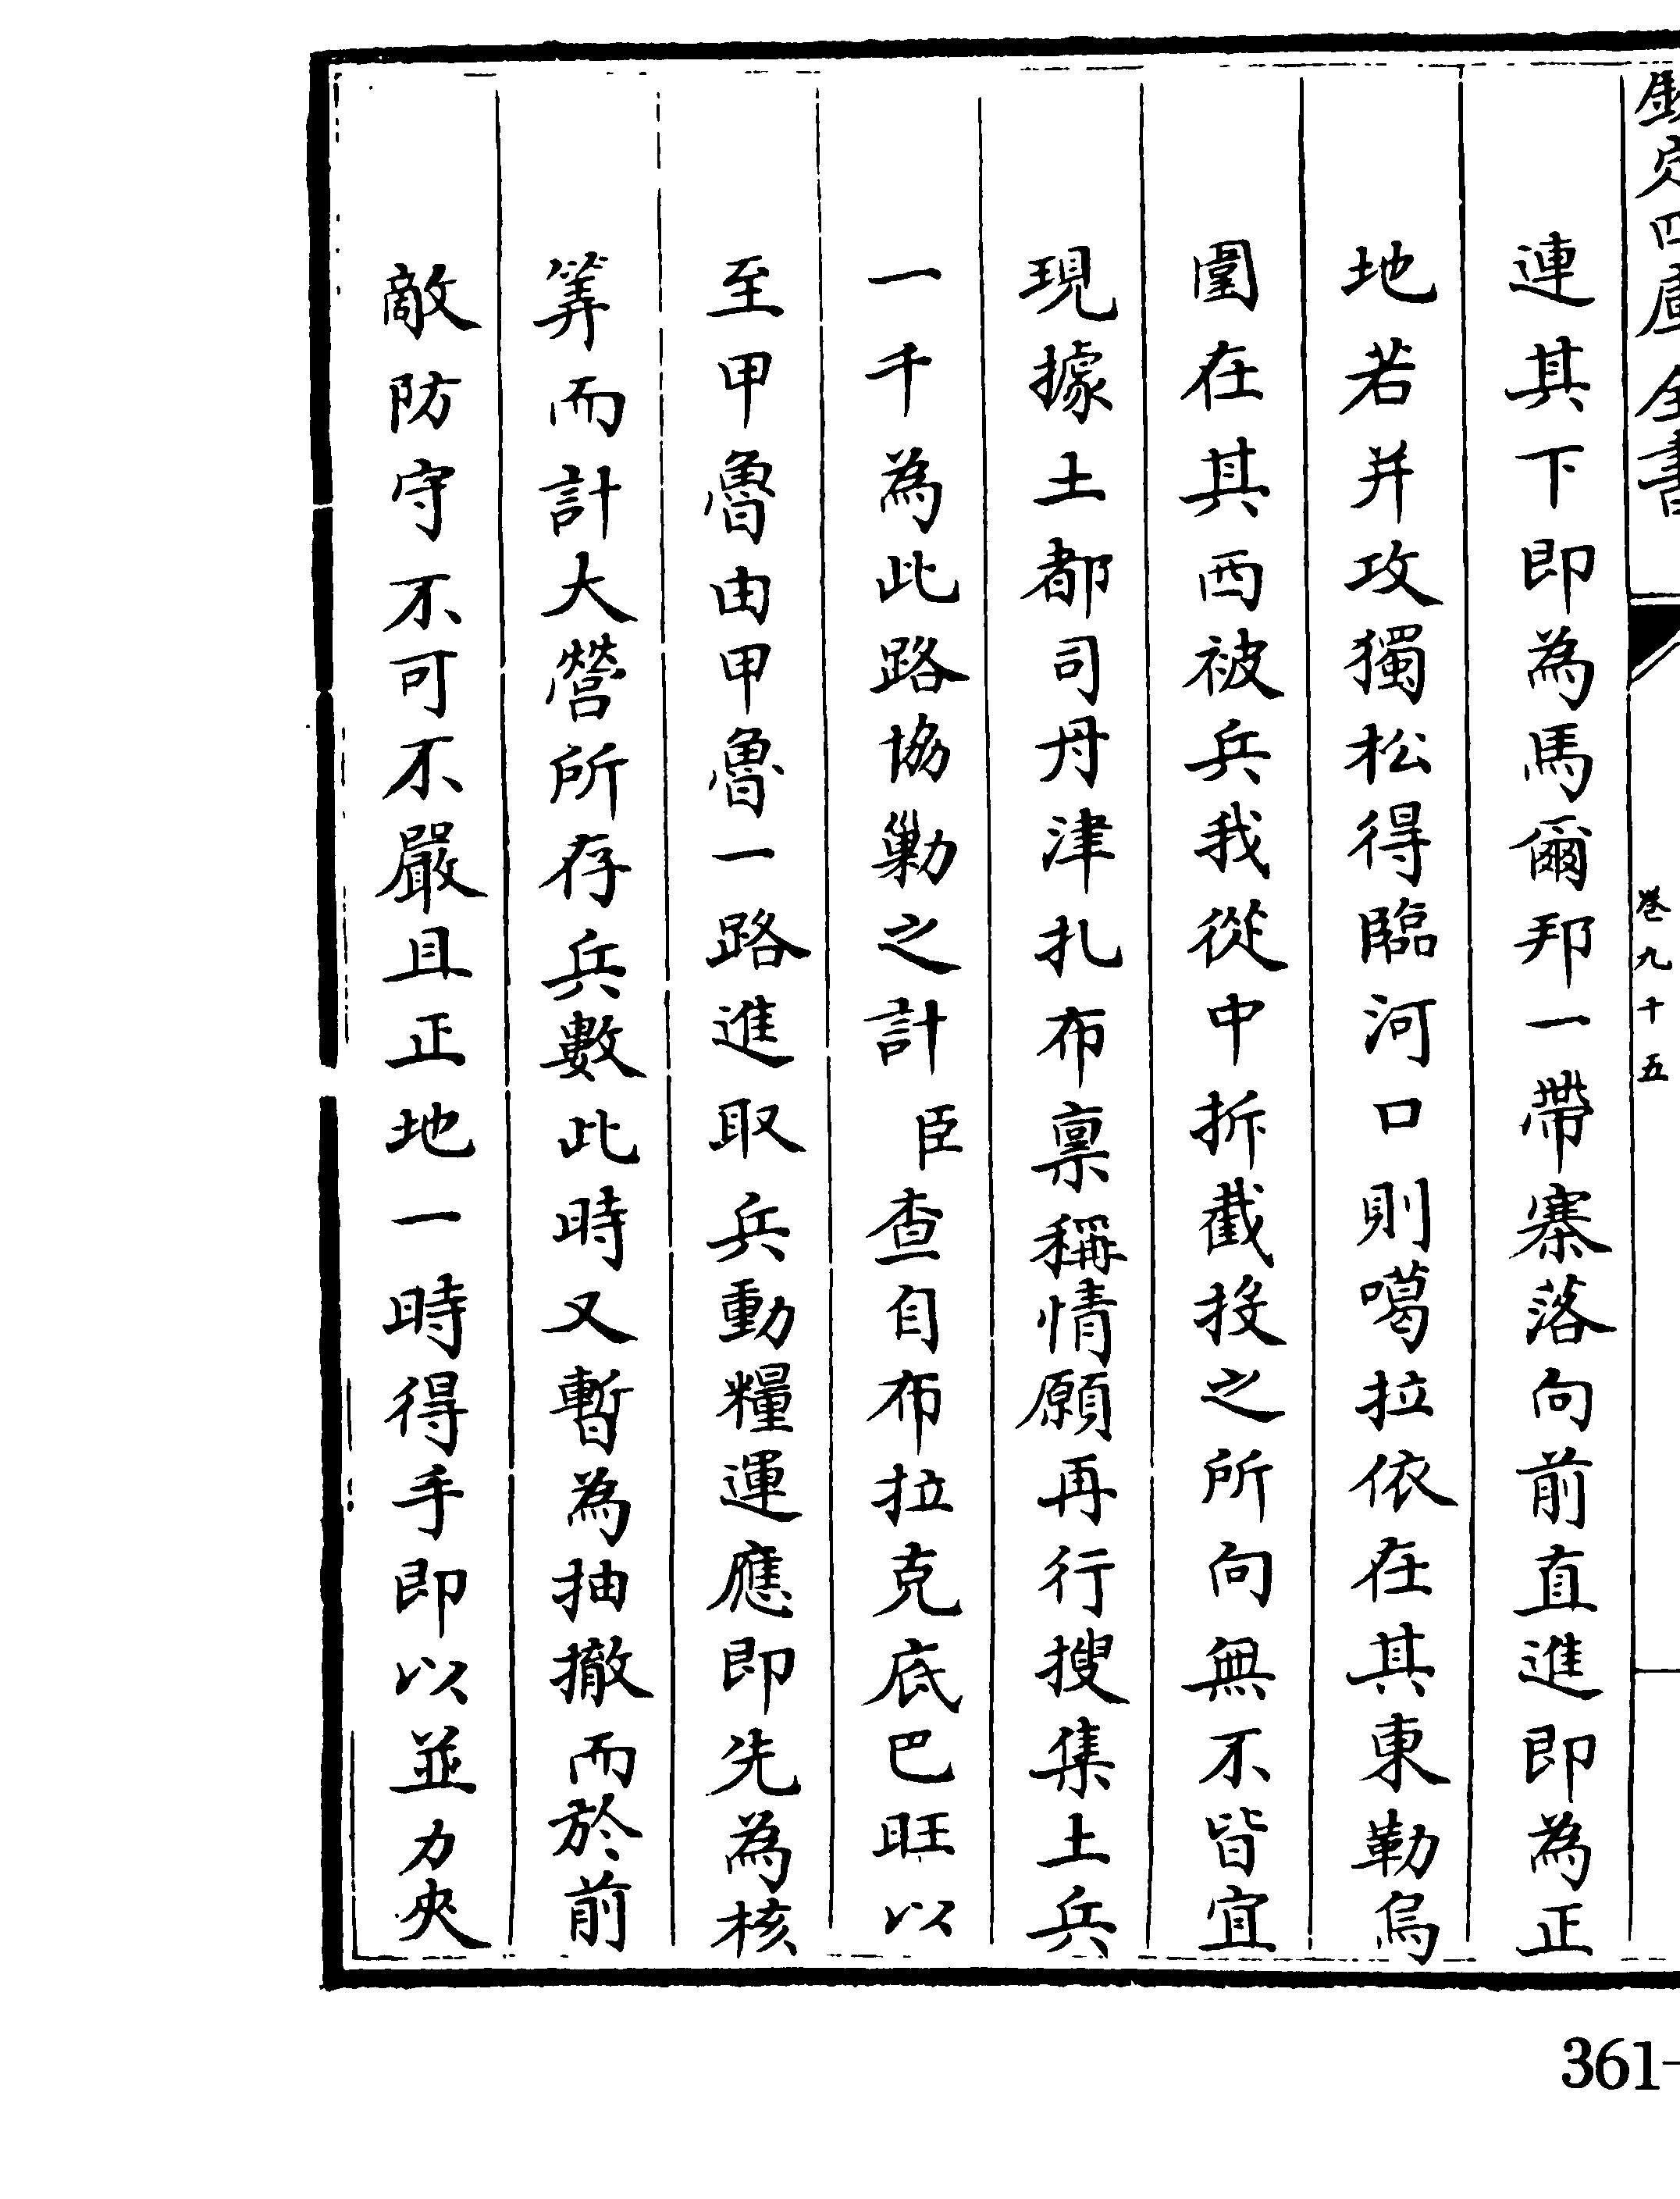 欽定四庫全書 卷九十五
連其下即為馬爾邦一帶寨落向前直進即為正
地若并攻獨松得臨河口則噶拉依在其東勒烏
圍在其西被兵我從中折截投之所向無不皆宜
現據土都司丹津扎布禀稱情願再行搜集土兵
一千為此路協勦之計臣查自布拉克底巴旺以
至甲魯由甲魯一路進取兵動糧運應即先為核
筭而計大營所存兵數此時又暫為抽撤而於前
敵防守不可不嚴且正地一時得手即以並力夾
361-